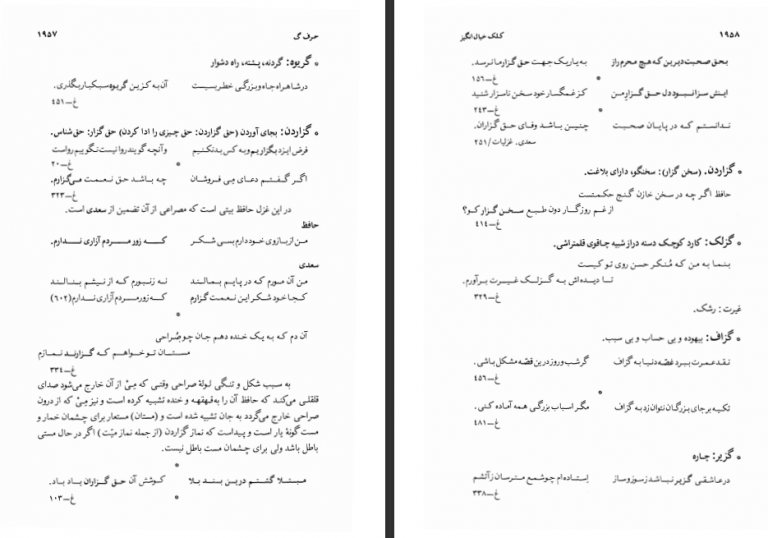 ۱۹۵۷
حرف گ
* گریوه: گردنه، پشته، راه دشوار
در شاهراه جاه و بزرگی خطر بسیست آن به کزین گریوه سبکبار بگذری.
غ-۴۵۱
* گزاردن: بجای آوردن (حق گزاردن: حق چیزی را ادا کردن) حق گزار: حق شناس.
فرض ایزد بگزاریم و به کس بد نکنیم وآنچه گویند روا نیست نگوییم رواست
غ-۲۰
*
اگر گفتم دعای می فروشان چه باشد حق نعمت می‌گزارم.
غ-۳۲۳
در این غزل حافظ بیتی است که مصراعی از آن تضمین از سعدی است.
حافظ
من از بازوی خود دارم بسی شکر که زور مردم آزاری ندارم.
سعدی
من آن مورم که در پایم بمالند نه زنبورم که از نیشم بنالند
کجا خود شکر این نعمت گزارم که زور مردم آزاری ندارم (۶۰۲)
*
آن دم که به یک خنده دهم جان چو صُراحی
مستان تو خواهم که گزارند نمازم
غ-۳۳۴
به سبب شکل و تنگی لولۀ صراحی وقتی که مِیْ از آن خارج می‌شود صدای
قلقلی می‌کند که حافظ آن را به قهقهه و خنده تشبیه کرده است و نیز مِیْ که از درون
صراحی خارج می‌گردد به جان تشبیه شده است و (مستان) مستعار برای چشمان خمار و
مست گونۀ یار است و پیداست که نماز گزاردن (از جمله نماز میّت) اگر در حال مستی
باطل باشد ولی برای چشمان مست باطل نیست.
*
مبتلا گشتم درین بند بلا کوشش آن حق گزاران یاد باد.
غ-۱۰۳
*
۱۹۵۸
کلک خیال انگیز
بحق صحبت دیرین که هیچ محرم راز به یار یک جهت حق گزار ما نرسد.
غ-۱۵۶
*
اینش سزا نبود دل حق گزار من کز غمگسار خود سخن ناسزار شنید
غ-۲۴۳
*
ندانستم که در پایان صحبت چنین باشد وفای حق گزاران.
سعدی. غزلیات/۲۵۱
* گزاردن. (سخن گزار): سخنگو، دارای بلاغت.
حافظ اگر چه در سخن خازن گنج حکمتست
از غم روزگار دون طبع سخن گزار کو؟
غ-۴۱۴
* گزلک: کارد کوچک دسته دراز شبیه چاقوی قلمتراشی.
بنما به من که مُنکر حسن روی تو کیست
تا دیده‌اش به گزلک غیرت برآورم.
غ-۳۲۹
غیرت: رشک.
* گزاف: بیهوده و بی حساب و بی سبب.
نقد عمرت ببرد غصۀ دنیا به گزاف گر شب و روز درین قصّه مشکل باشی.
غ-۴۵۶
*
تکیه بر جای بزرگان نتوان زد به گزاف مگر اسباب بزرگی همه آماده کنی.
غ-۴۸۱
* گزیر: چاره
در عاشقی گزیر نباشد ز سوز و ساز اِستاده‌ام چو شمع مترسان ز آتشم
غ-۳۳۸